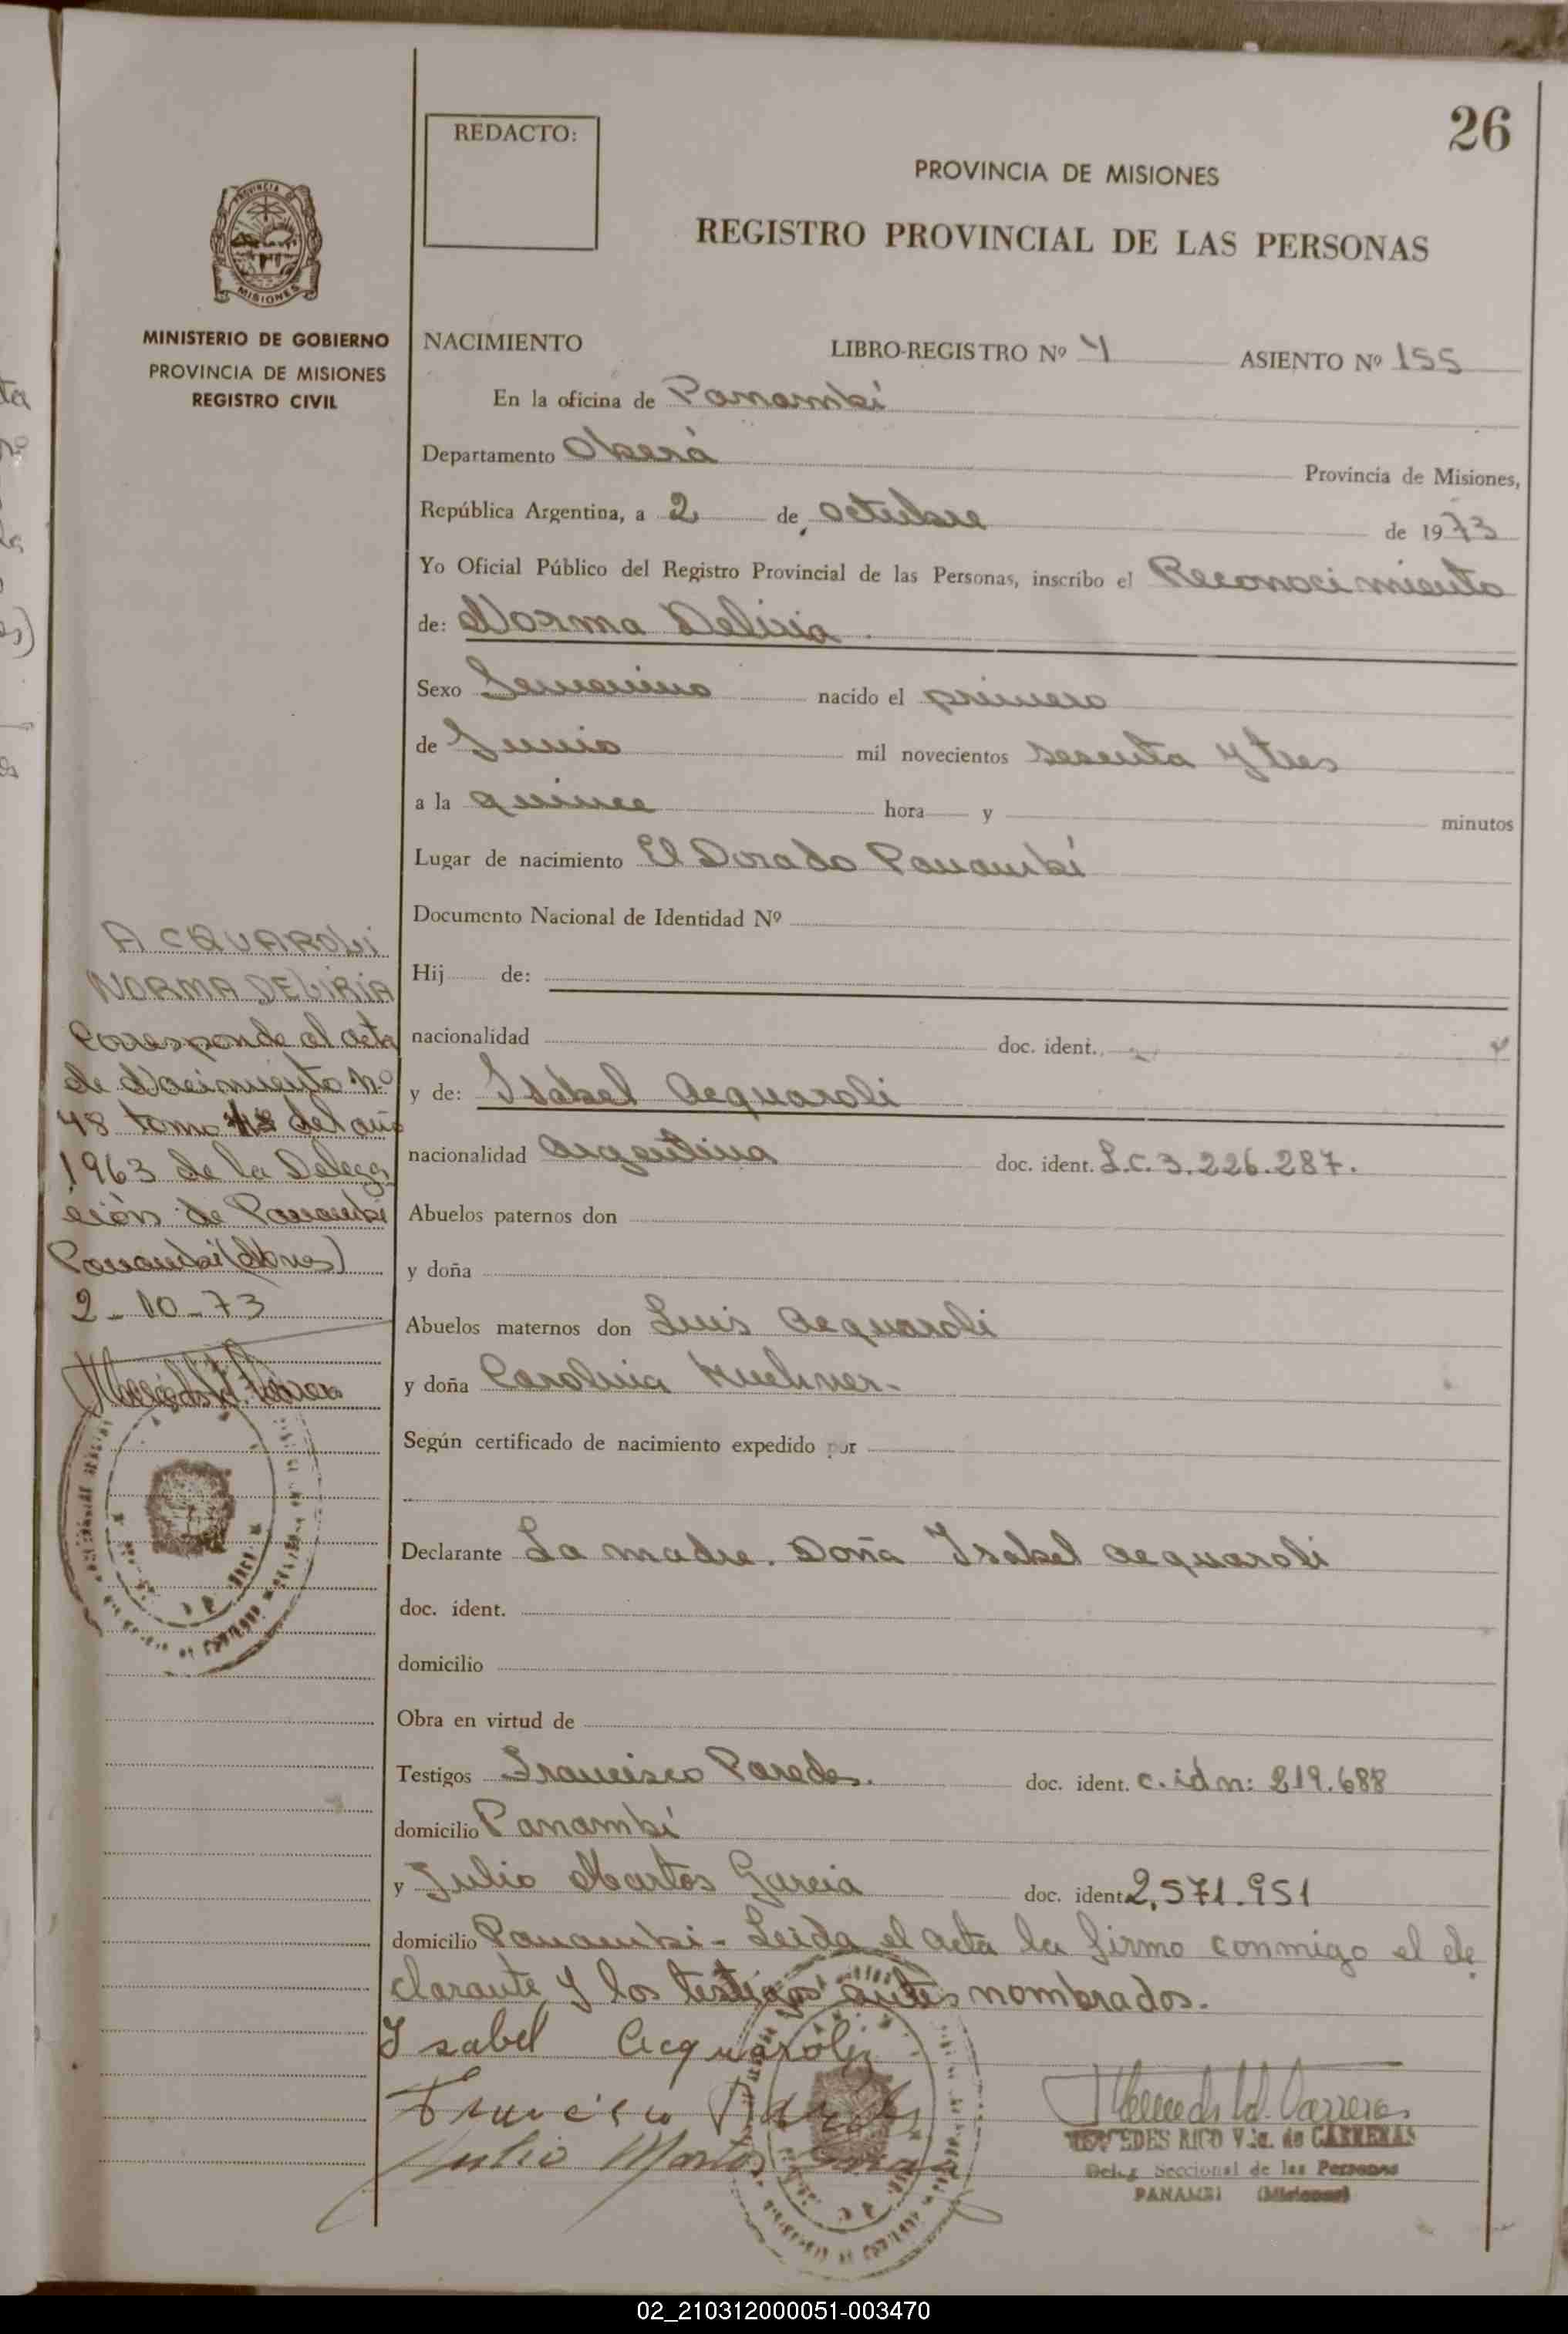 26
REDACTO:
PROVINCIA DE MISIONES
REGISTRO PROVINCIAL DE LAS PERSONAS
PROVINCIA DE
MISIONES
MINISTERIO DE GOBIERNO
PROVINCIA DE MISIONES
REGISTRO CIVIL
NACIMIENTO LIBRO-REGISTRO Nº 4 ASIENTO Nº 155
En la oficina de Panambí
Departamento Oberá Provincia de Misiones,
República Argentina, a 2 de octubre de 1973
Yo Oficial Público del Registro Provincial de las Personas, inscribo el Reconocimiento
de: Norma Deliria.
Sexo Femenino nacido el primero
de Junio mil novecientos sesenta y tres
a la quince hora y minutos
Lugar de nacimiento El Dorado Panambí
Documento Nacional de Identidad Nº
Hij de:
nacionalidad doc. ident.
y de: Isabel Acquaroli
nacionalidad Argentina doc. ident. L.C. 3.226.287.
Abuelos paternos don
y doña
Abuelos maternos don Luis Acquaroli
y doña Carolina
Según certificado de nacimiento expedido por
Declarante La madre. Doña Isabel Acquaroli
doc. ident.
domicilio
Obra en virtud de
Testigos Francisco Paredes. doc. ident. c. id n: 219.688
domicilio Panambí
y Julio Martos Garcia doc. ident. 2,571.951
domicilio Panambi - Leida el acta la firmo conmigo el de
clarante y los testigos antes nombrados.
Isabel Acquaroli
Francisco Paredes
Julio Martos Garcia
MERCEDES RICO V.da. de CARRERAS
Deleg Seccional de las Personas
PANAMBI (Misiones)
ACQUAROLI
NORMA DELIRIA
Corresponde al acta
de Nacimiento n.º
48 tomo del año
1963 de la Delega
ción de Panambi
Panambi (Mnes)
2-10-73
02_210312000051-003470